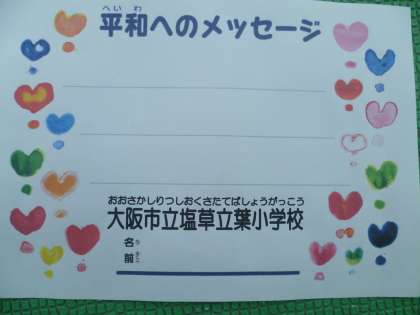 へいわ
平和へのメッセージ
おおさかしりつしおくさたてばしょうがっこう
大阪市立塩草立葉小学校
名前
なまえ